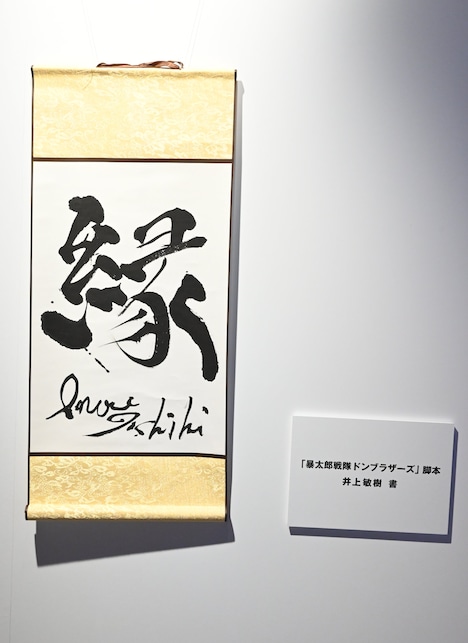 縁
Inoue
Toshiki
「暴太郎戦隊ドンブラザーズ」脚本
井上敏樹 書